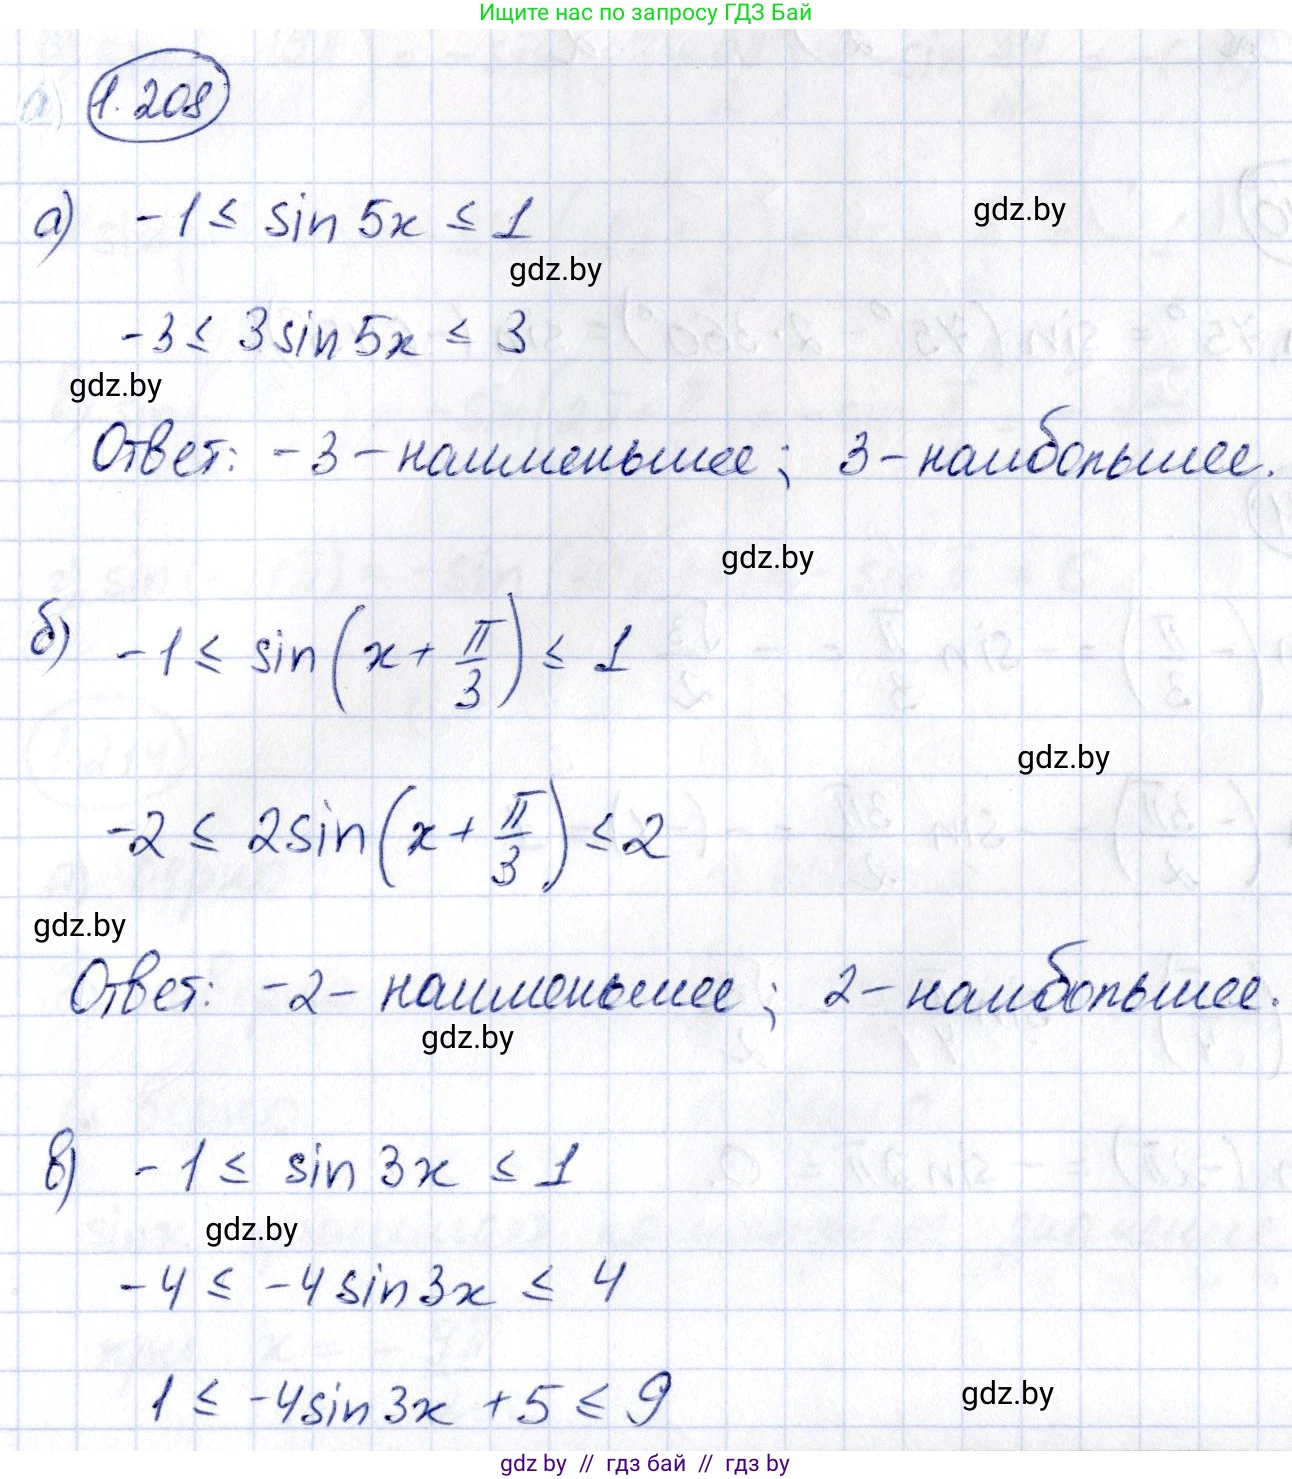 Ищите нас по запросу ГДЗ Бай
1.208
а) -1 ≤ sin 5x ≤ 1
gdz.by
gdz.by
-3 ≤ 3 sin 5x ≤ 3
gdz.by
Ответ: -3 - наименьшее; 3 - наибольшее.
gdz.by
б) -1 ≤ sin(x + π/3) ≤ 1
gdz.by
-2 ≤ 2 sin(x + π/3) ≤ 2
gdz.by
Ответ: -2 - наименьшее; 2 - наибольшее.
gdz.by
в) -1 ≤ sin 3x ≤ 1
gdz.by
-4 ≤ -4 sin 3x ≤ 4
1 ≤ -4 sin 3x + 5 ≤ 9
gdz.by
gdz by // гдз бай // гдз by